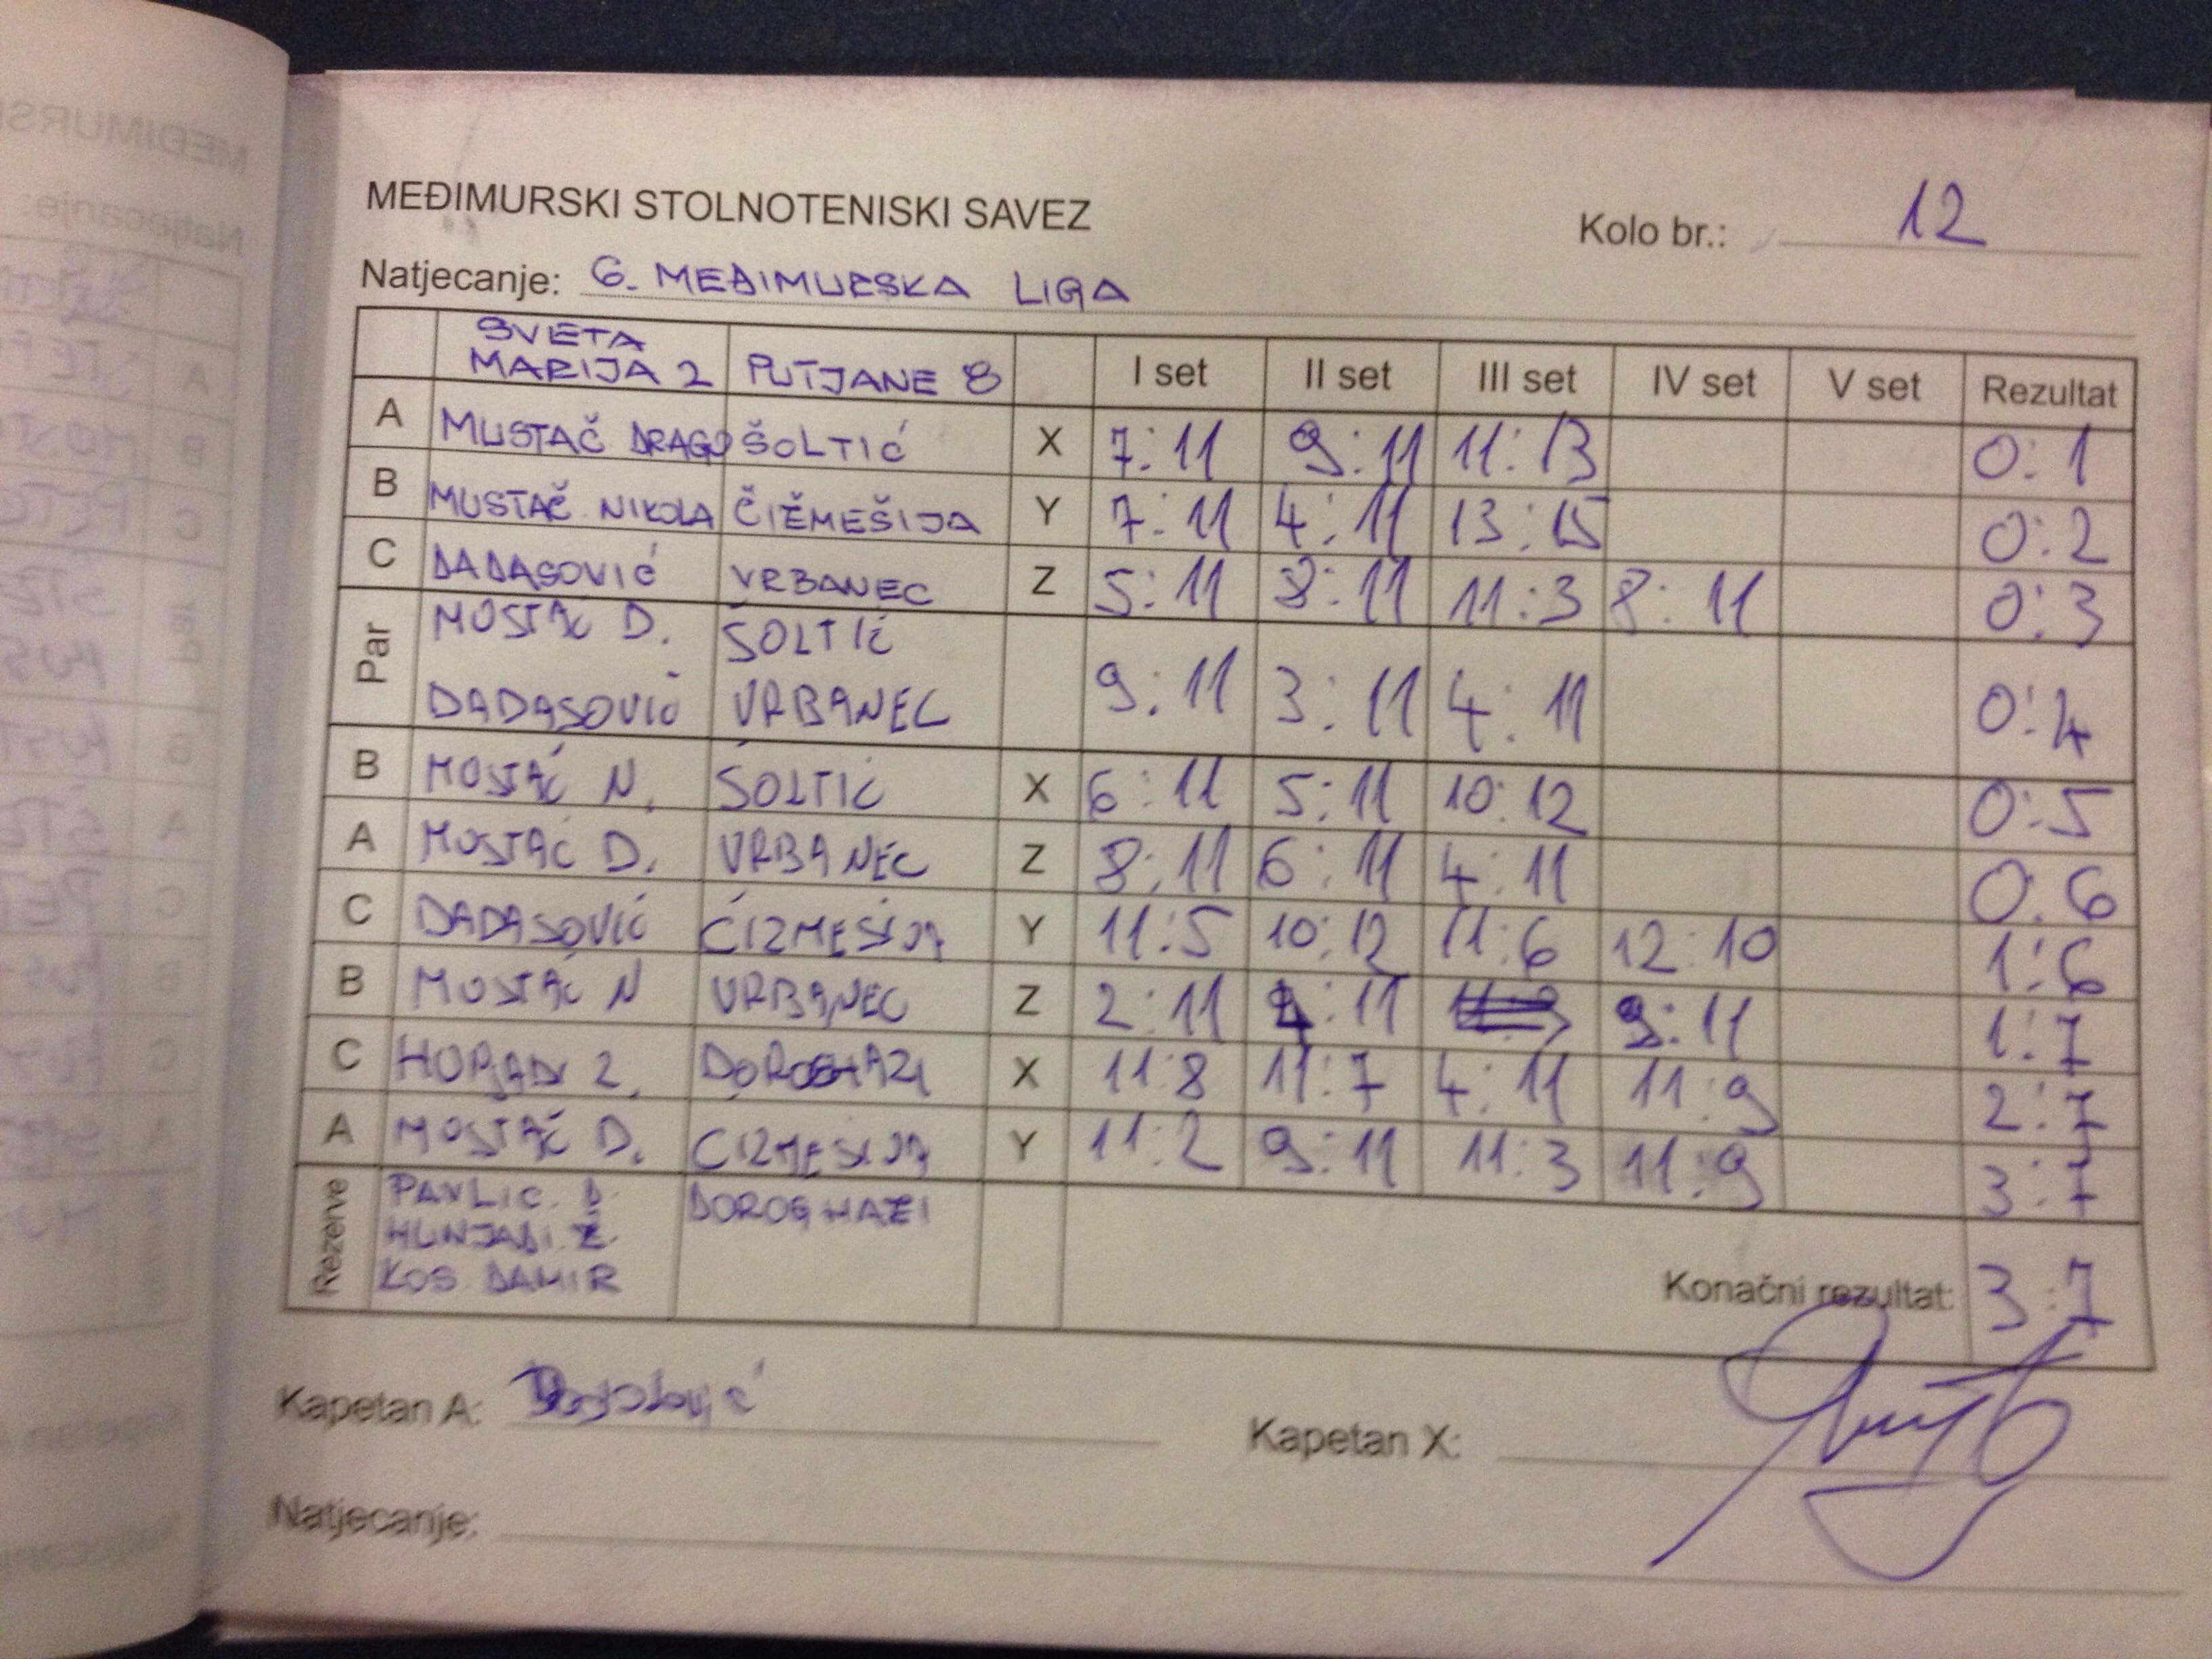 MEĐIMURSKI STOLNOTENISKI SAVEZ
Kolo br.: 12
Natjecanje: 6. MEĐIMURSKA LIGA
SVETA MARIJA 2 PUTJANE 8 I set II set III set IV set V set Rezultat
A MUSTAČ DRAGO ŠOLTIĆ X 7:11 9:11 11:13 0:1
B MUSTAČ NIKOLA ČIŽMEŠIJA Y 7:11 4:11 13:15 0:2
C DADASOVIĆ VRBANEC Z 5:11 8:11 11:3 8:11 0:3
Par MOSTAČ D. ŠOLTIĆ
DADASOVIĆ VRBANEC 9:11 3:11 4:11 0:4
B MOSTAČ N. ŠOLTIĆ X 6:11 5:11 10:12 0:5
A MOSTAČ D. VRBANEC Z 8:11 6:11 4:11 0:6
C DADASOVIĆ ČIZMEŠIJA Y 11:5 10:12 11:6 12:10 1:6
B MOSTAČ N VRBANEC Z 2:11 4:11 9:11 1:7
C Z. DOROGHAZI X 11:8 11:7 4:11 11:9 2:7
A MOSTAČ D. CIZMESIJA Y 11:2 9:11 11:3 11:9 3:7
Rezerve PAVLIC. D. DOROGHAZI
HUNJADI Ž.
KOS DAMIR
Konačni rezultat: 3:7
Kapetan A:
Kapetan X:
Natjecanje: